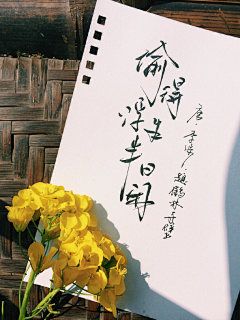 偷得
浮生
半日闲
唐 李涉
题鹤林寺僧舍